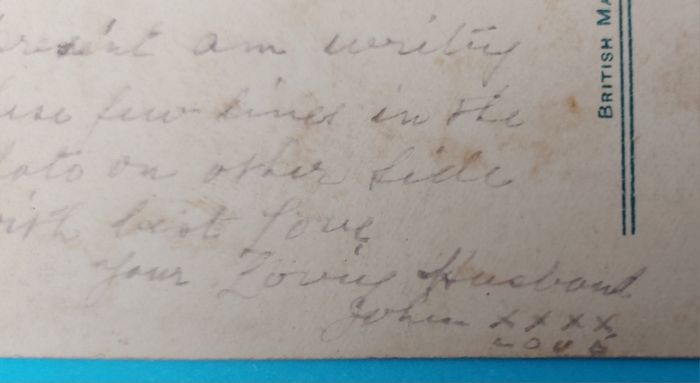 present am writing
these few lines in the
on other side
with best love
your Loving Husband
John xxxx
LOVE
BRITISH MA